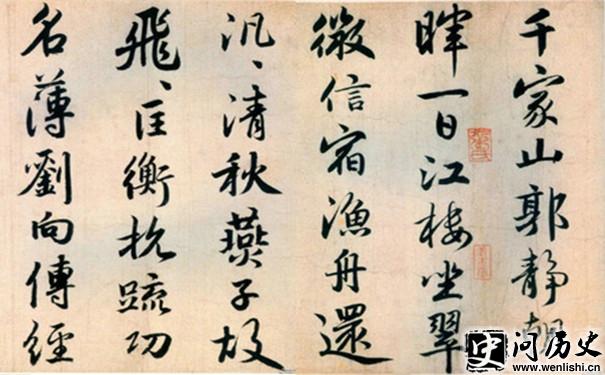 千家山郭靜朝
暉一日江樓坐翠
微信宿漁舟還
汎〻清秋燕子故
飛〻匡衡抗疏功
名薄劉向傳經
史 问历史
www.wenlishi.cn